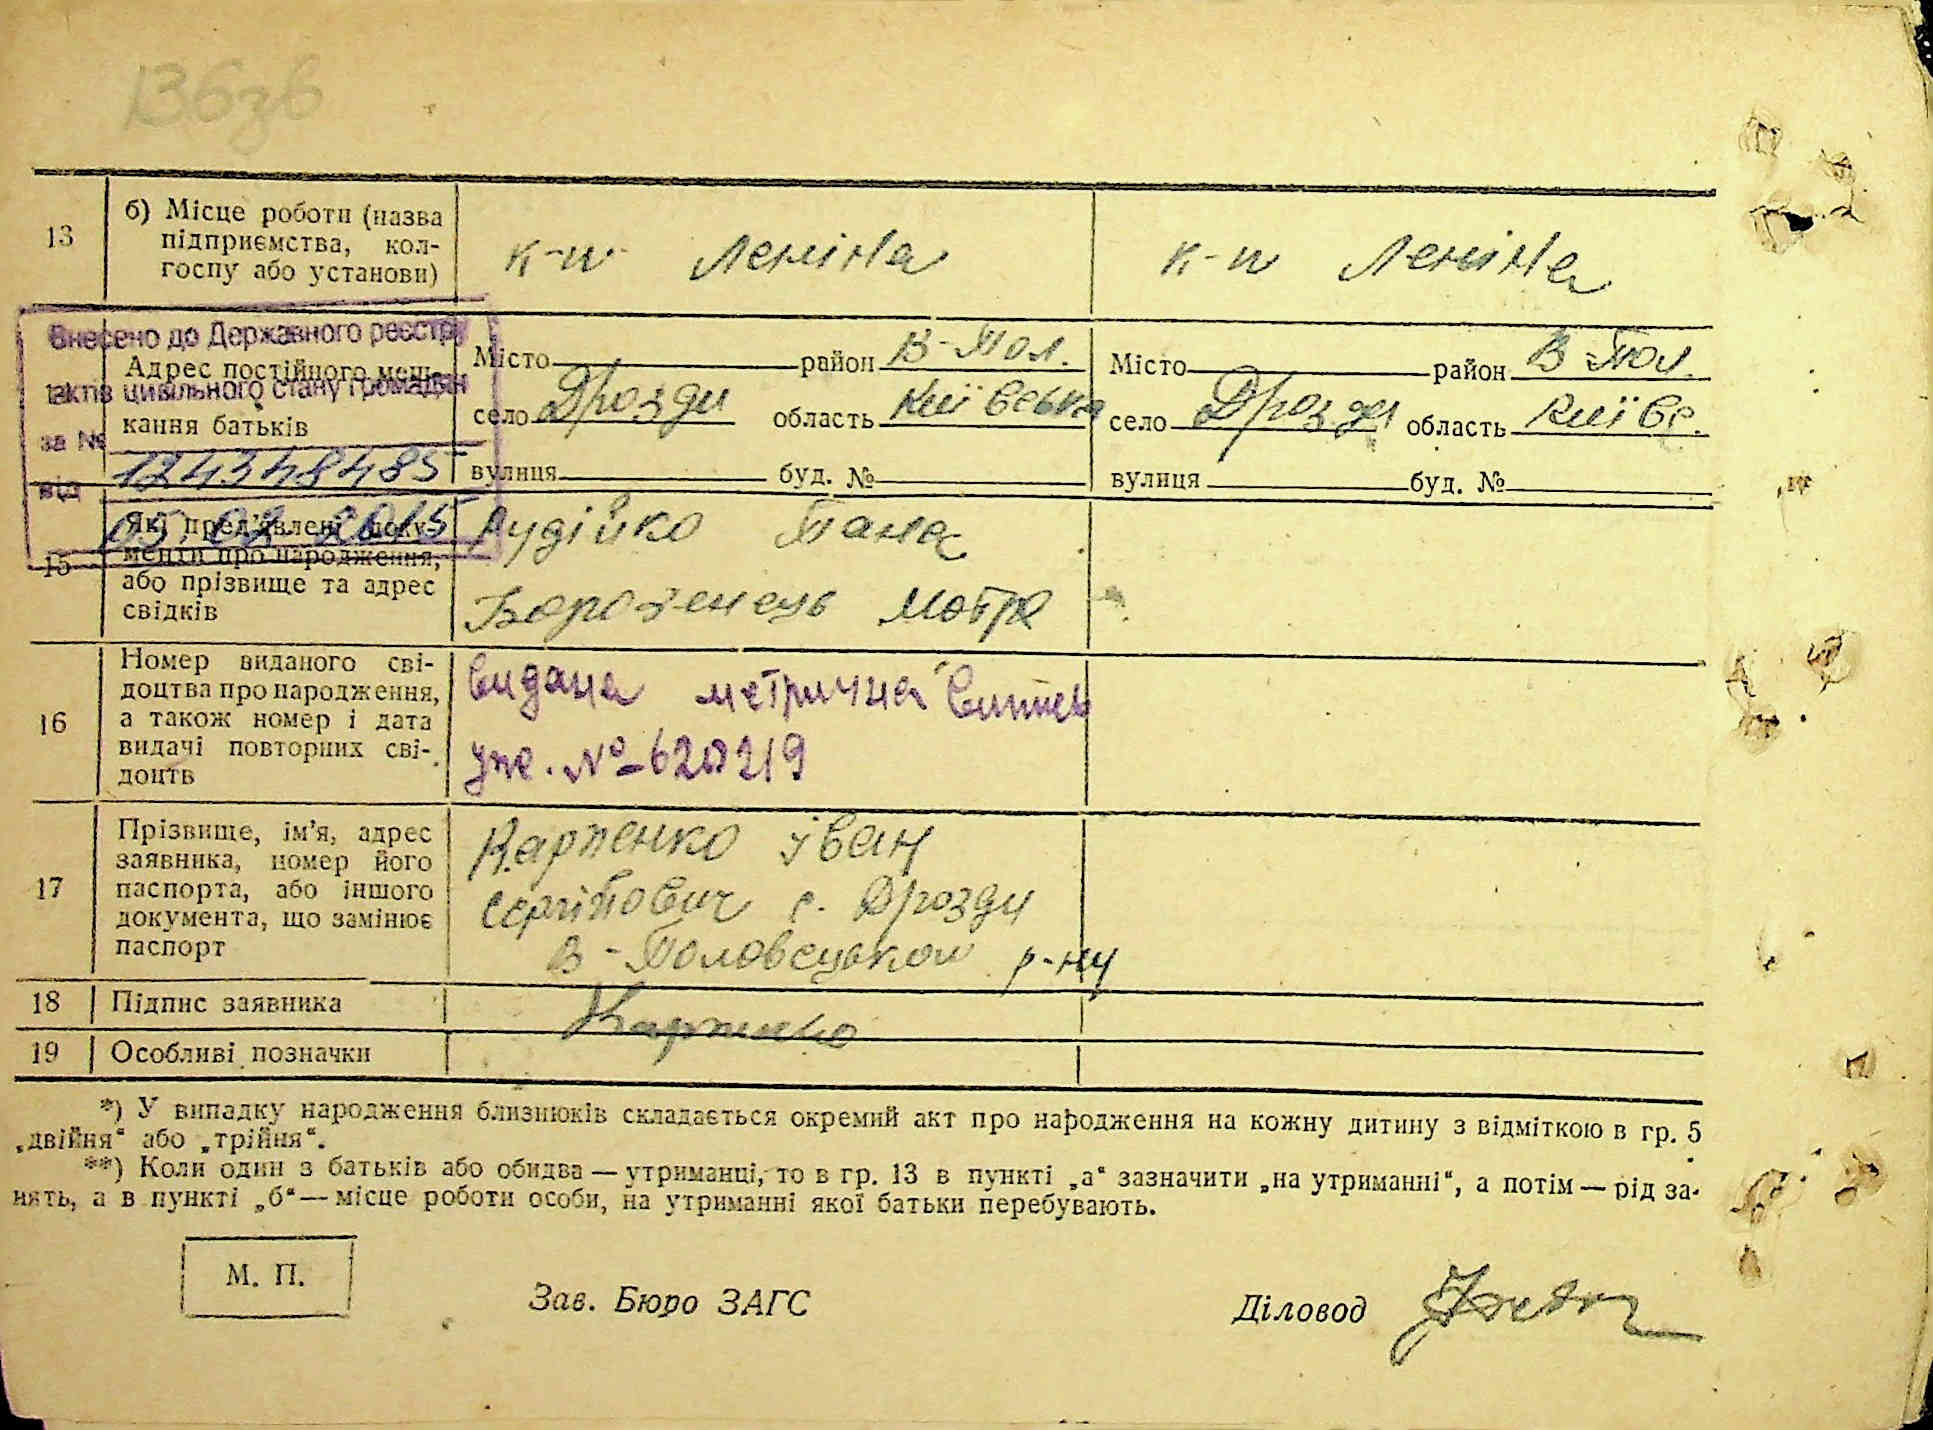 136зв
13
б) Місце роботи (назва
підприємства, кол-
госпу або установи)
к-п Леніна
к-п Леніна
Внесено до Державного реєстру
актів цивільного стану громадян
за №
124348485
від
05 02 2015
Адрес постійного меш-
кання батьків
Місто район В-Пол.
село Дрозди область Київська
вулиця буд. №
Місто район В-Пол.
село Дрозди область Київс.
вулиця буд. №
15
Які пред'явлені доку-
менти про народження,
або прізвище та адрес
свідків
Рудійко
Мотря
16
Номер виданого сві-
доцтва про народження,
а також номер і дата
видачі повторних сві-
доцтв
видана метрична випись
уже. № 620219
17
Прізвище, ім'я, адрес
заявника, номер його
паспорта, або іншого
документа, що замінює
паспорт
Карпенко Іван
с. Дрозди
В-Половецького р-ну
18 Підпис заявника
Карпенко
19 Особливі позначки
*) У випадку народження близнюків складається окремий акт про народження на кожну дитину з відміткою в гр. 5
„двійня“ або „трійня“.
**) Коли один з батьків або обидва — утриманці, то в гр. 13 в пункті „а“ зазначити „на утриманні“, а потім — рід за-
нять, а в пункті „б“ — місце роботи особи, на утриманні якої батьки перебувають.
М. П.
Зав. Бюро ЗАГС
Діловод